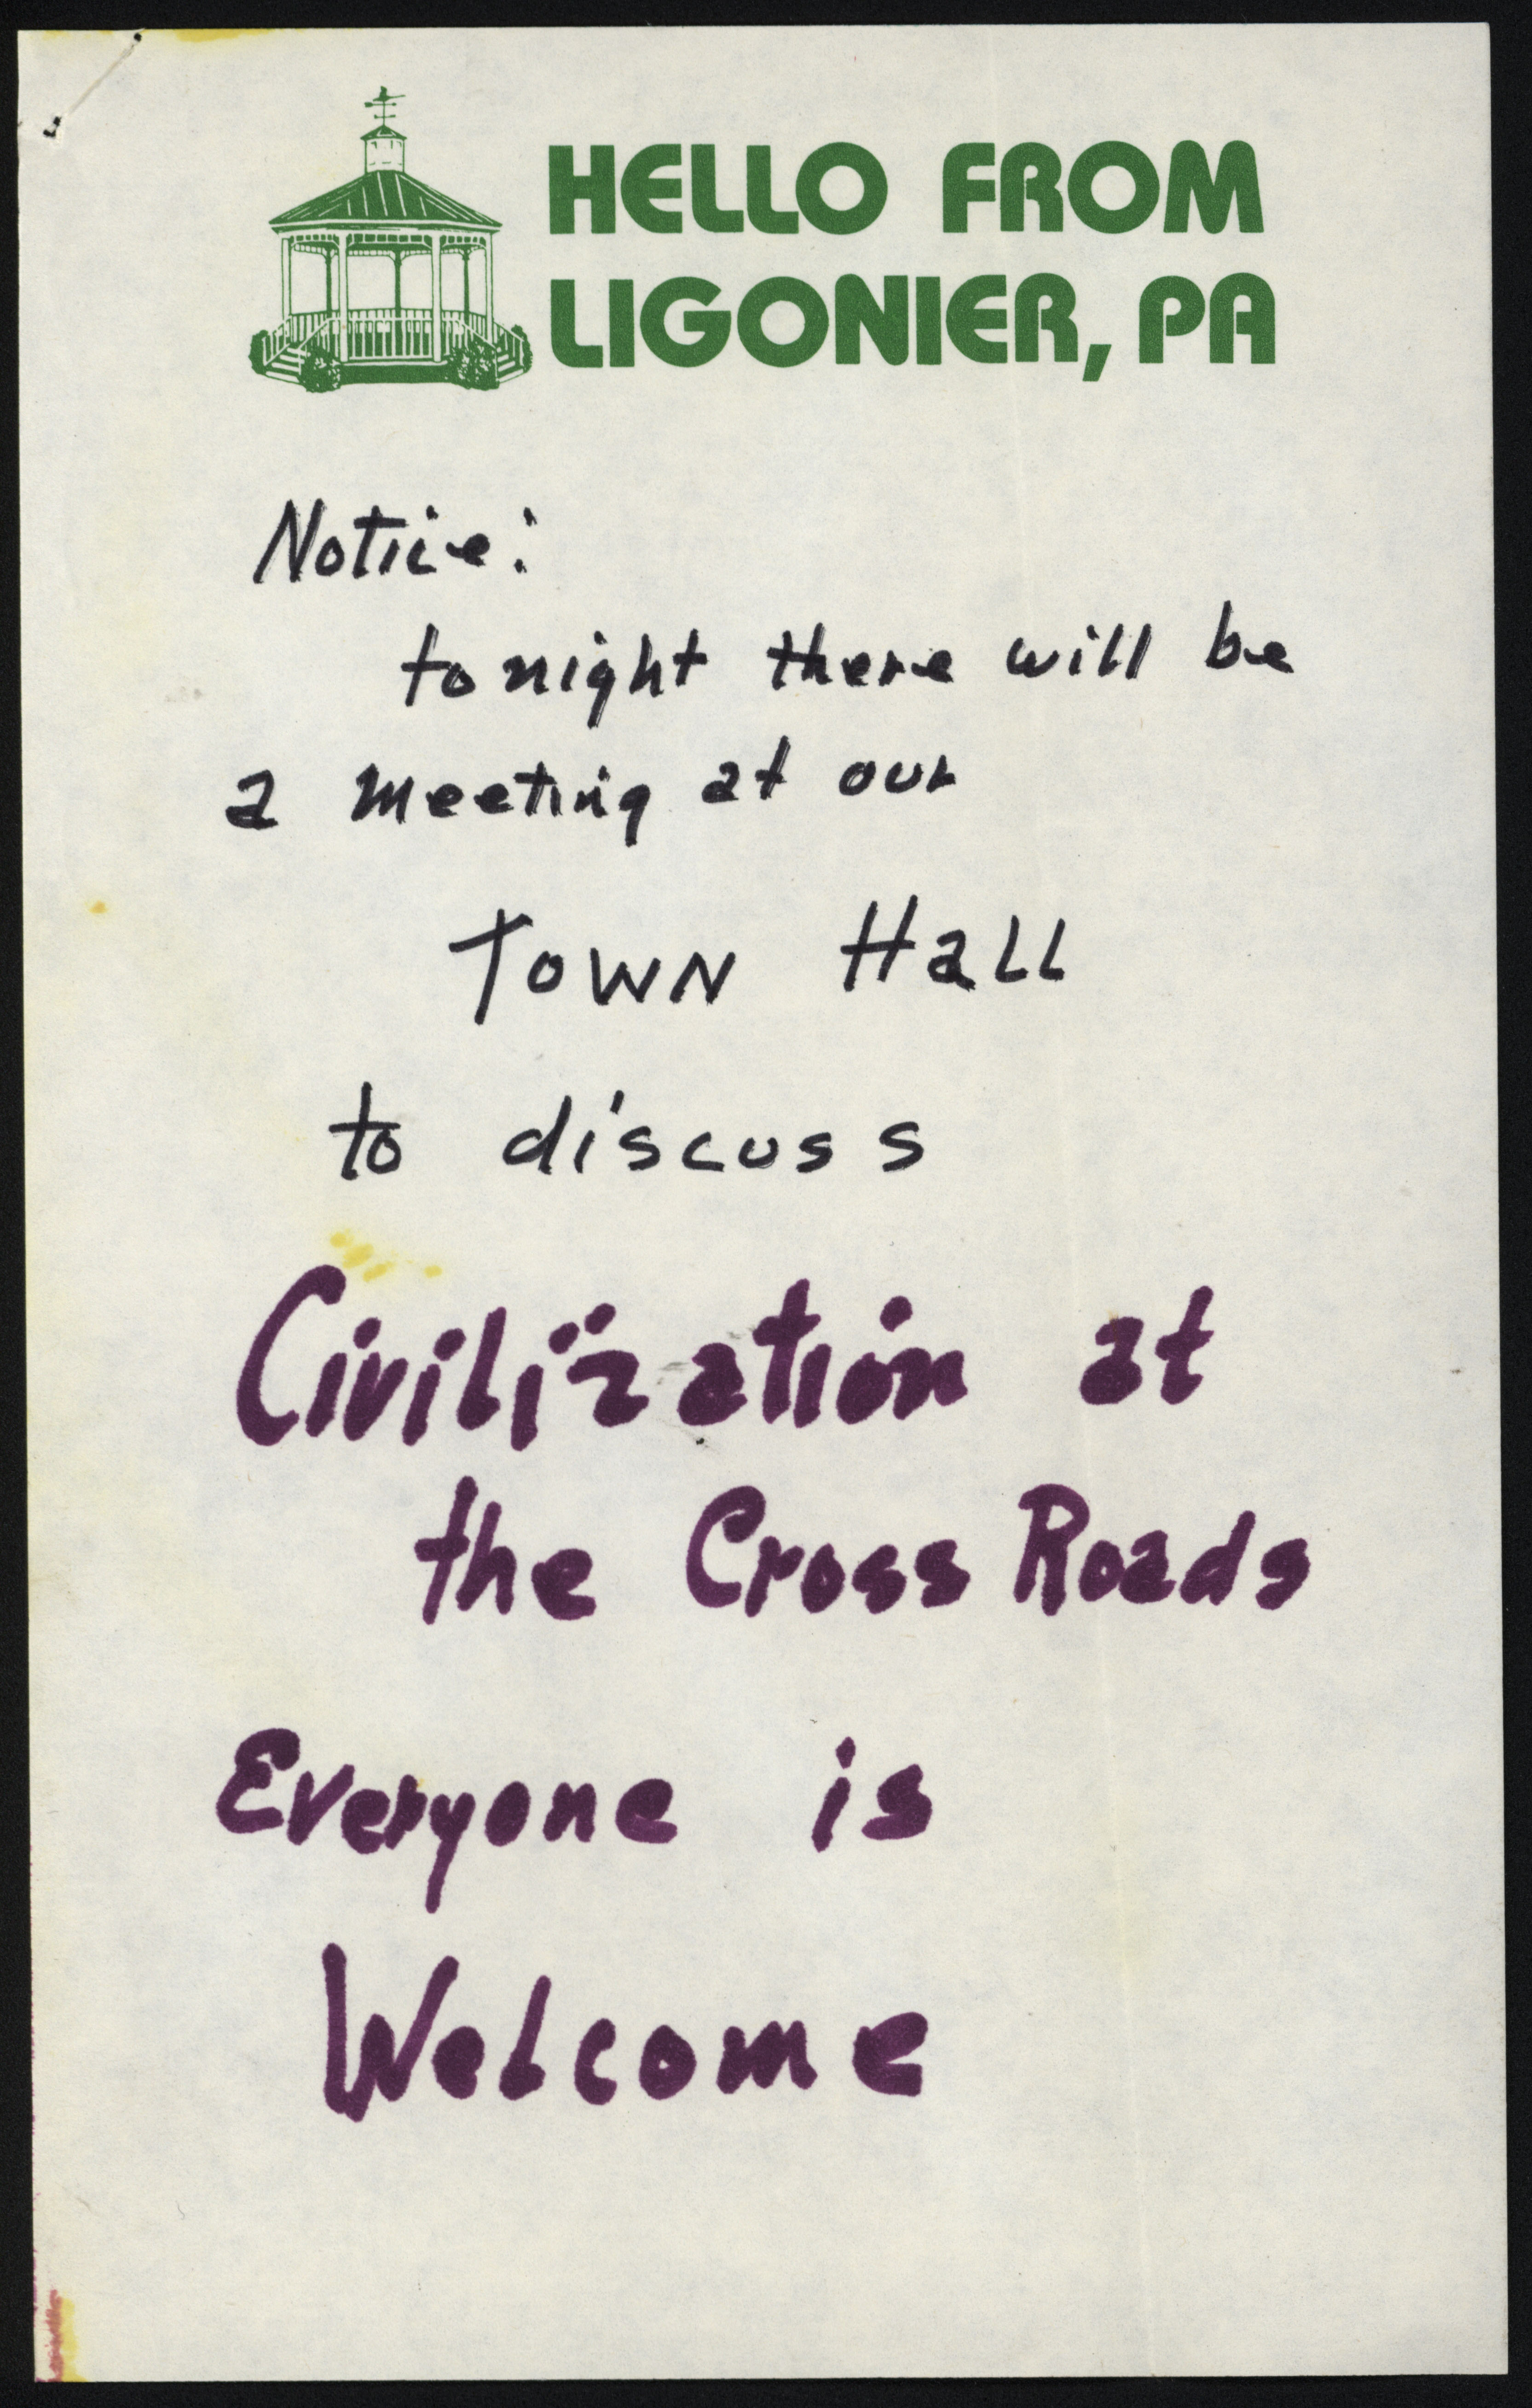 HELLO FROM
LIGONIER, PA
Notice:
tonight there will be
a meeting at our
Town Hall
to discuss
Civilization at
the Cross Roads
Everyone is
Welcome